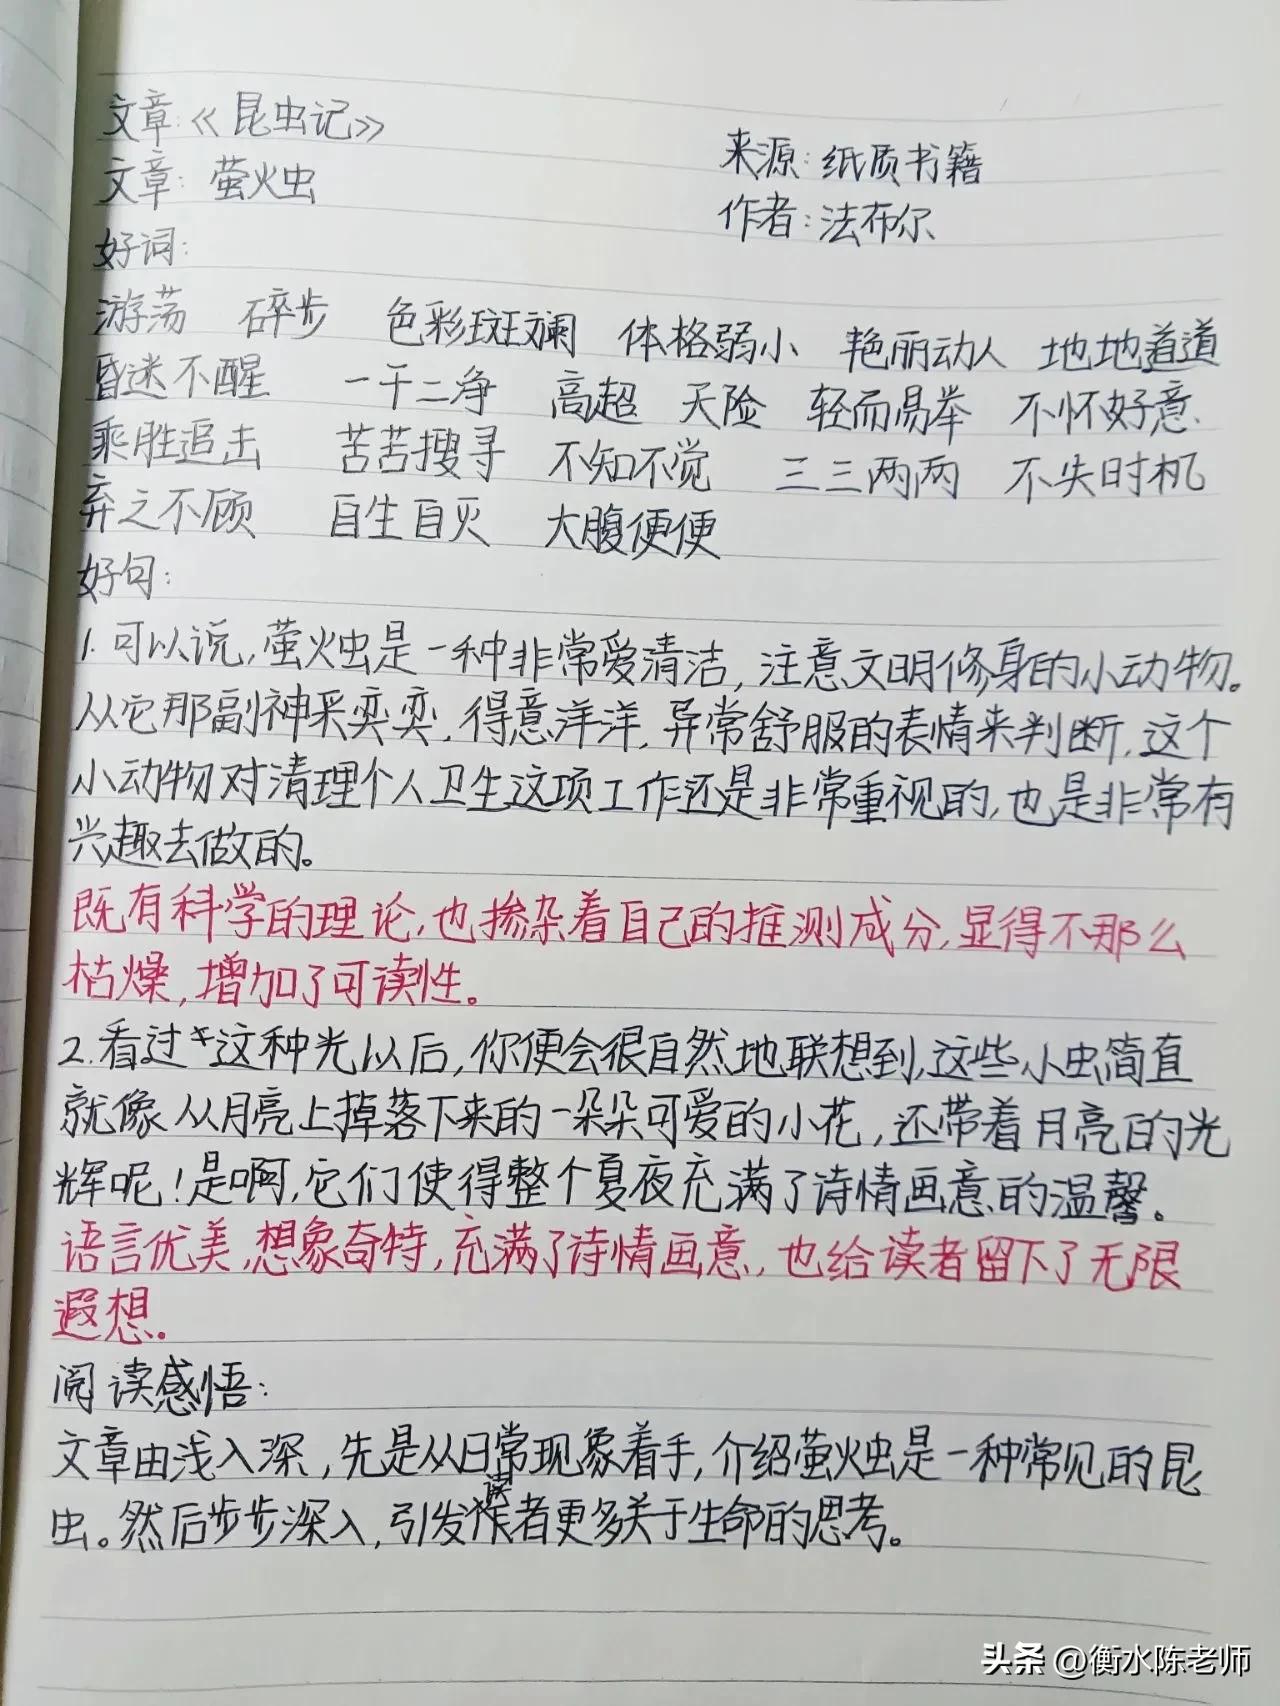 文章:《昆虫记》
来源:纸质书籍
文章:萤火虫
作者:法布尔
好词:
游荡 碎步 色彩斑斓 体格弱小 艳丽动人 地地道道
昏迷不醒 一干二净 高超 天险 轻而易举 不怀好意.
乘胜追击 苦苦搜寻 不知不觉 三三两两 不失时机
弃之不顾 自生自灭 大腹便便
好句:
1.可以说,萤火虫是一种非常爱清洁,注意文明修身的小动物。
从它那副神采奕奕,得意洋洋,异常舒服的表情来判断,这个
小动物对清理个人卫生这项工作还是非常重视的,也是非常有
兴趣去做的。
既有科学的理论,也掺杂着自己的推测成分,显得不那么
枯燥,增加了可读性。
2.看过这种光以后,你便会很自然地联想到,这些小虫简直
就像从月亮上掉落下来的一朵朵可爱的小花,还带着月亮的光
辉呢!是啊,它们使得整个夏夜充满了诗情画意的温馨。
语言优美,想象奇特,充满了诗情画意,也给读者留下了无限
遐想.
阅读感悟:
文章由浅入深,先是从日常现象着手,介绍萤火虫是一种常见的昆
虫。然后步步深入,引发读者更多关于生命的思考。
头条 @衡水陈老师